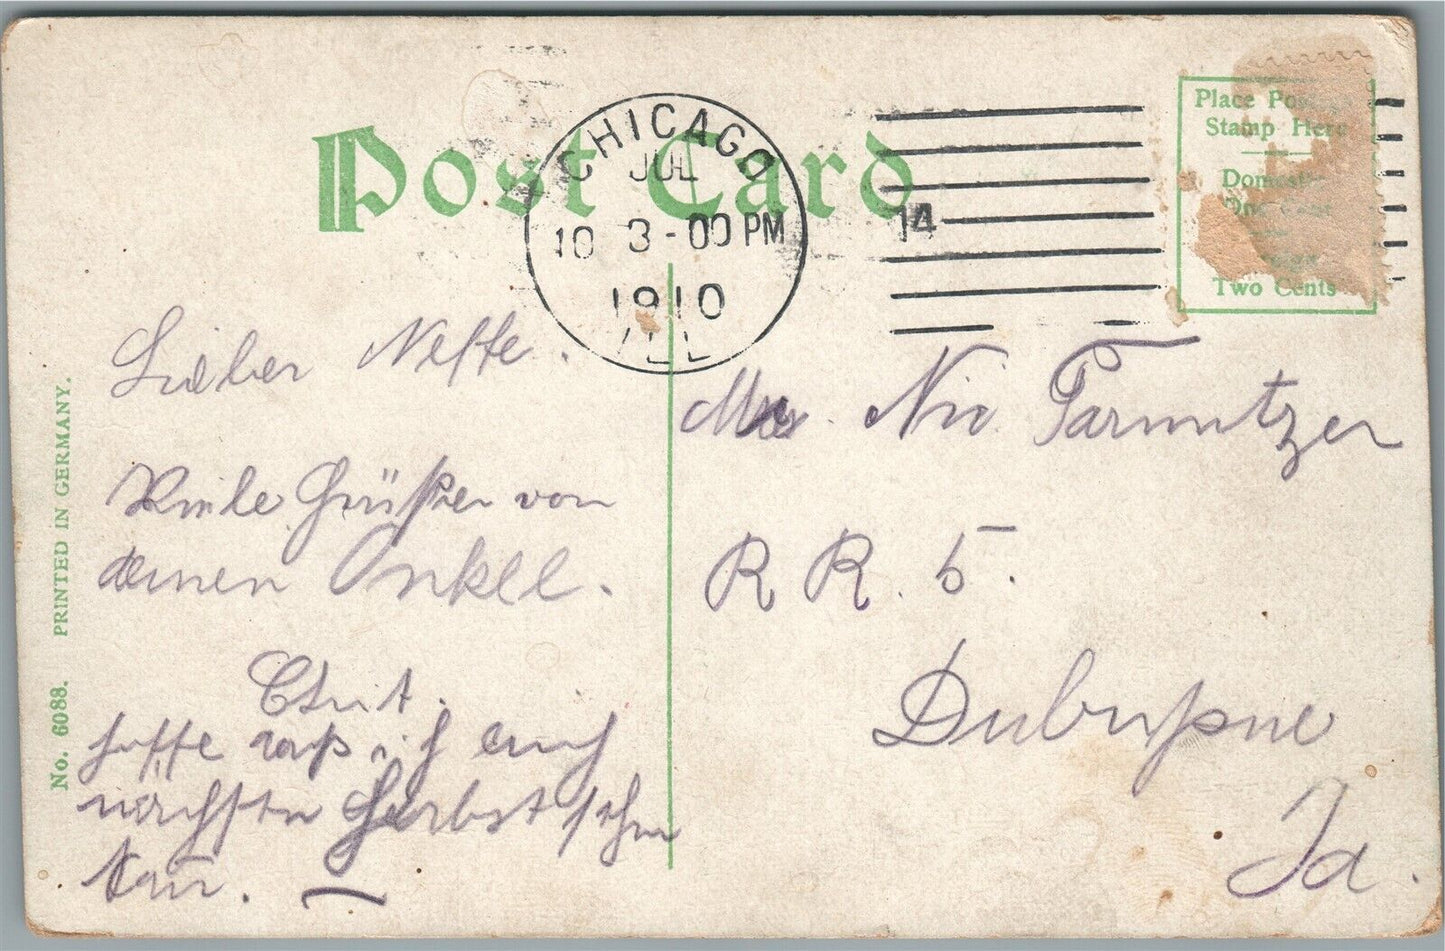 Post Card
CHICAGO
JUL
10 3-00 PM
1910
ILL
14
Place Postage
Stamp Here
Domestic
One Cent
Two Cents
No. 6088. PRINTED IN GERMANY.
Lieber Neffe.
Viele Grüße von
deinen Onkel.
hoffe daß ich euch
nächsten Herbst sehen
kann.
Nic Parmitzer
R R. 5.
Dubuque
Ia.